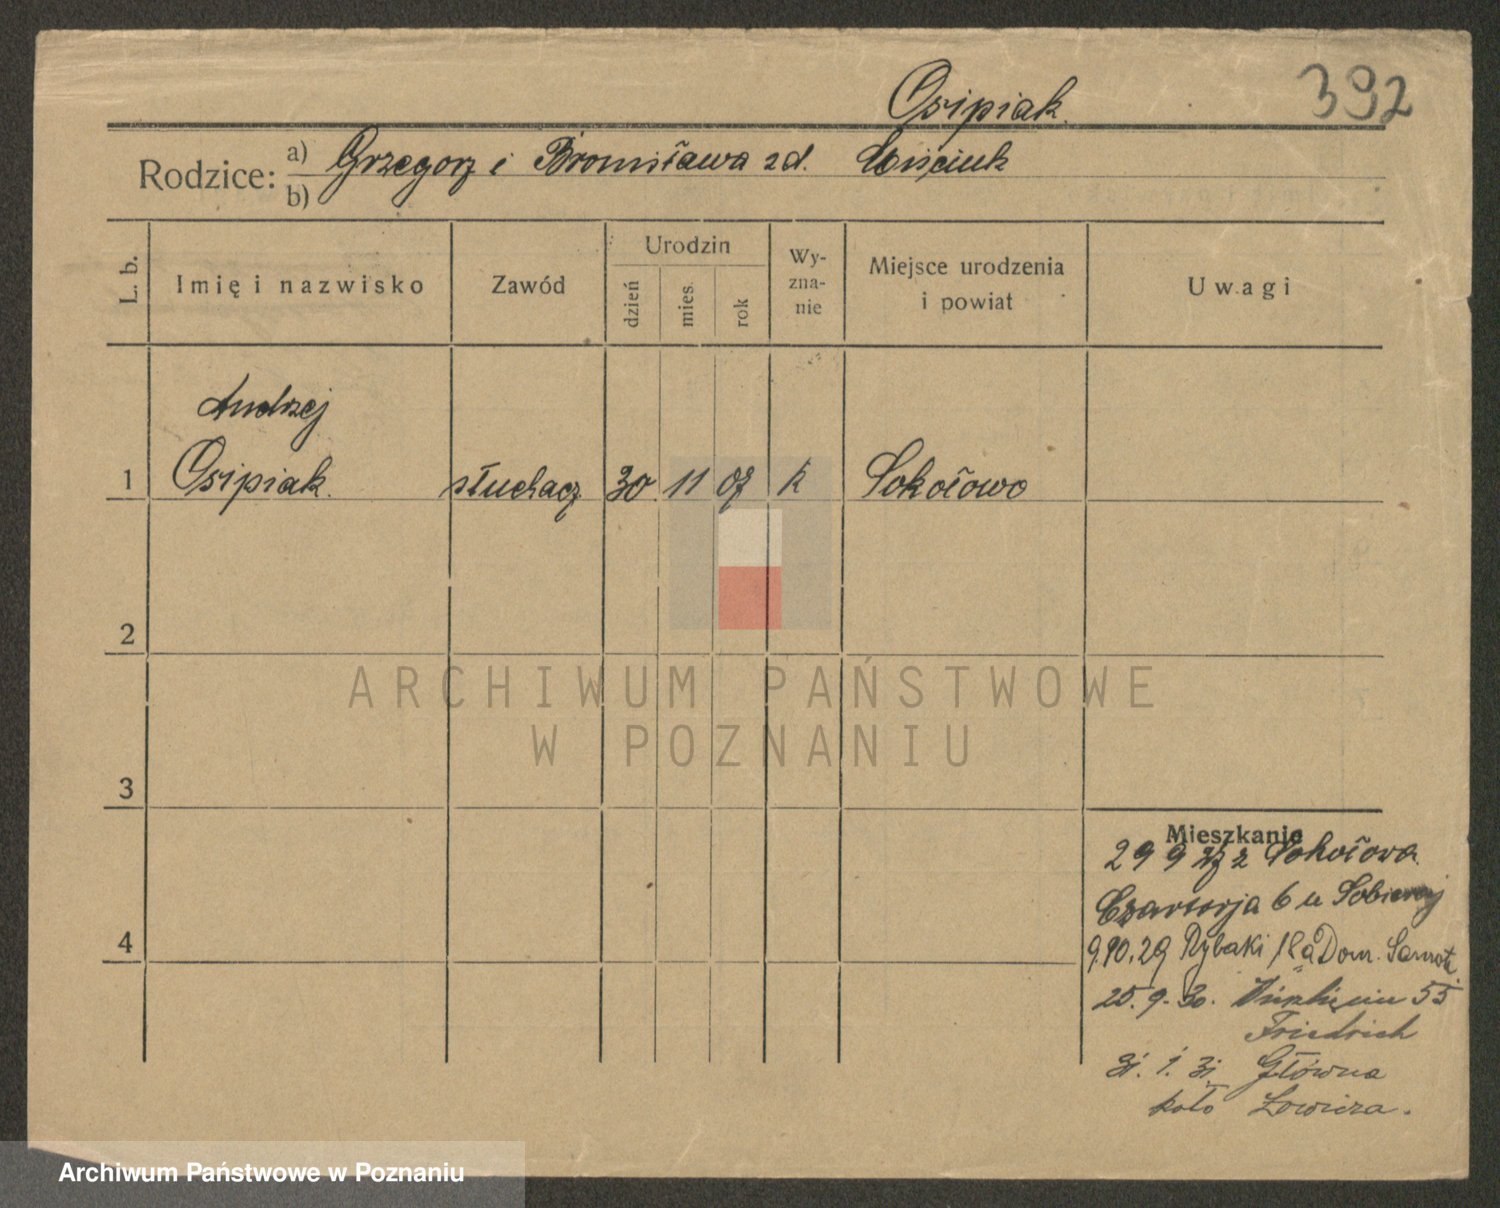 392
Osipiak.
Rodzice: a) Grzegorz i Bronisława zd.
b)
L. b.
Imię i nazwisko
Zawód
Urodzin
dzień
mies.
rok
Wy-
zna-
nie
Miejsce urodzenia
i powiat
Uwagi
Andrzej
1 Osipiak. słuchacz 30 11 07 k Sokołowo
2
3
4
ARCHIWUM PAŃSTWOWE
W POZNANIU
Mieszkanie
29 9 27 z Sokołowa
Czartorja 6 u
9.10.29 Rybaki 18a Dom.
25. 9. 30. 55
Friedrich
31. 1. 31. Główna
koło Łowicza.
Archiwum Państwowe w Poznaniu